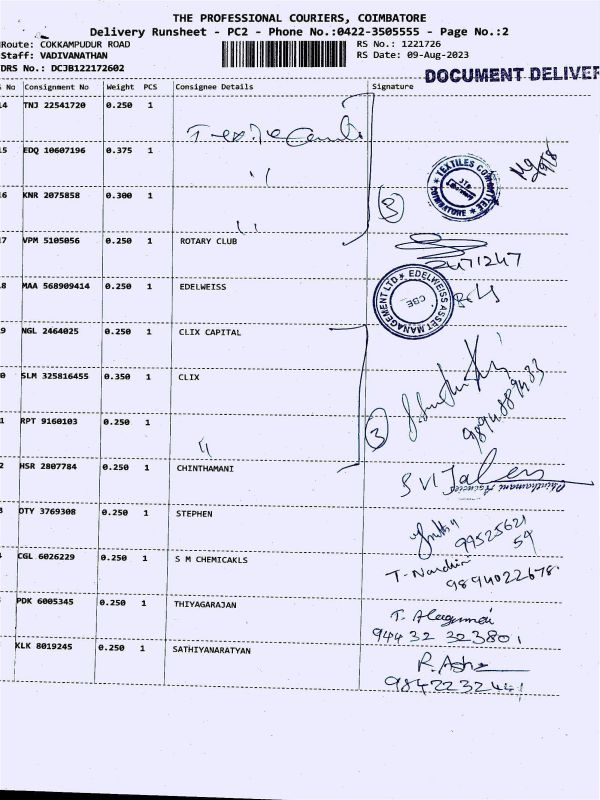 THE PROFESSIONAL COURIERS, COIMBATORE
Delivery Runsheet - PC2 - Phone No.:0422-3505555 - Page No.:2
Route: COKKAMPUDUR ROAD
RS No.: 1221726
Staff: VADIVANATHAN
RS Date: 09-Aug-2023
DRS No.: DCJB122172602
DOCUMENT DELIVER
No Consignment No Weight PCS Consignee Details Signature
4 TNJ 22541720 0.250 1
5 EDQ 10607196 0.375 1 "
TEXTILES COMMITTEE
COIMBATORE
6 KNR 2075858 0.300 1 "
3
7 VPM 5105056 0.250 1 ROTARY CLUB
8 MAA 568909414 0.250 1 EDELWEISS
EDELWEISS ASSET MANAGEMENT LTD
CBE
9 NGL 2464025 0.250 1 CLIX CAPITAL
0 SLM 325816455 0.350 1 CLIX
9894889433
1 RPT 9160103 0.250 1 "
3
2 HSR 2807784 0.250 1 CHINTHAMANI
Chinthamani Agencies
3 OTY 3769308 0.250 1 STEPHEN
99525621
54
CGL 6026229 0.250 1 S M CHEMICAKLS
T. Nandhini
9894022678
PDK 6005345 0.250 1 THIYAGARAJAN
944 32 323801
KLK 8019245 0.250 1 SATHIYANARATYAN
R. Asha
9842232441